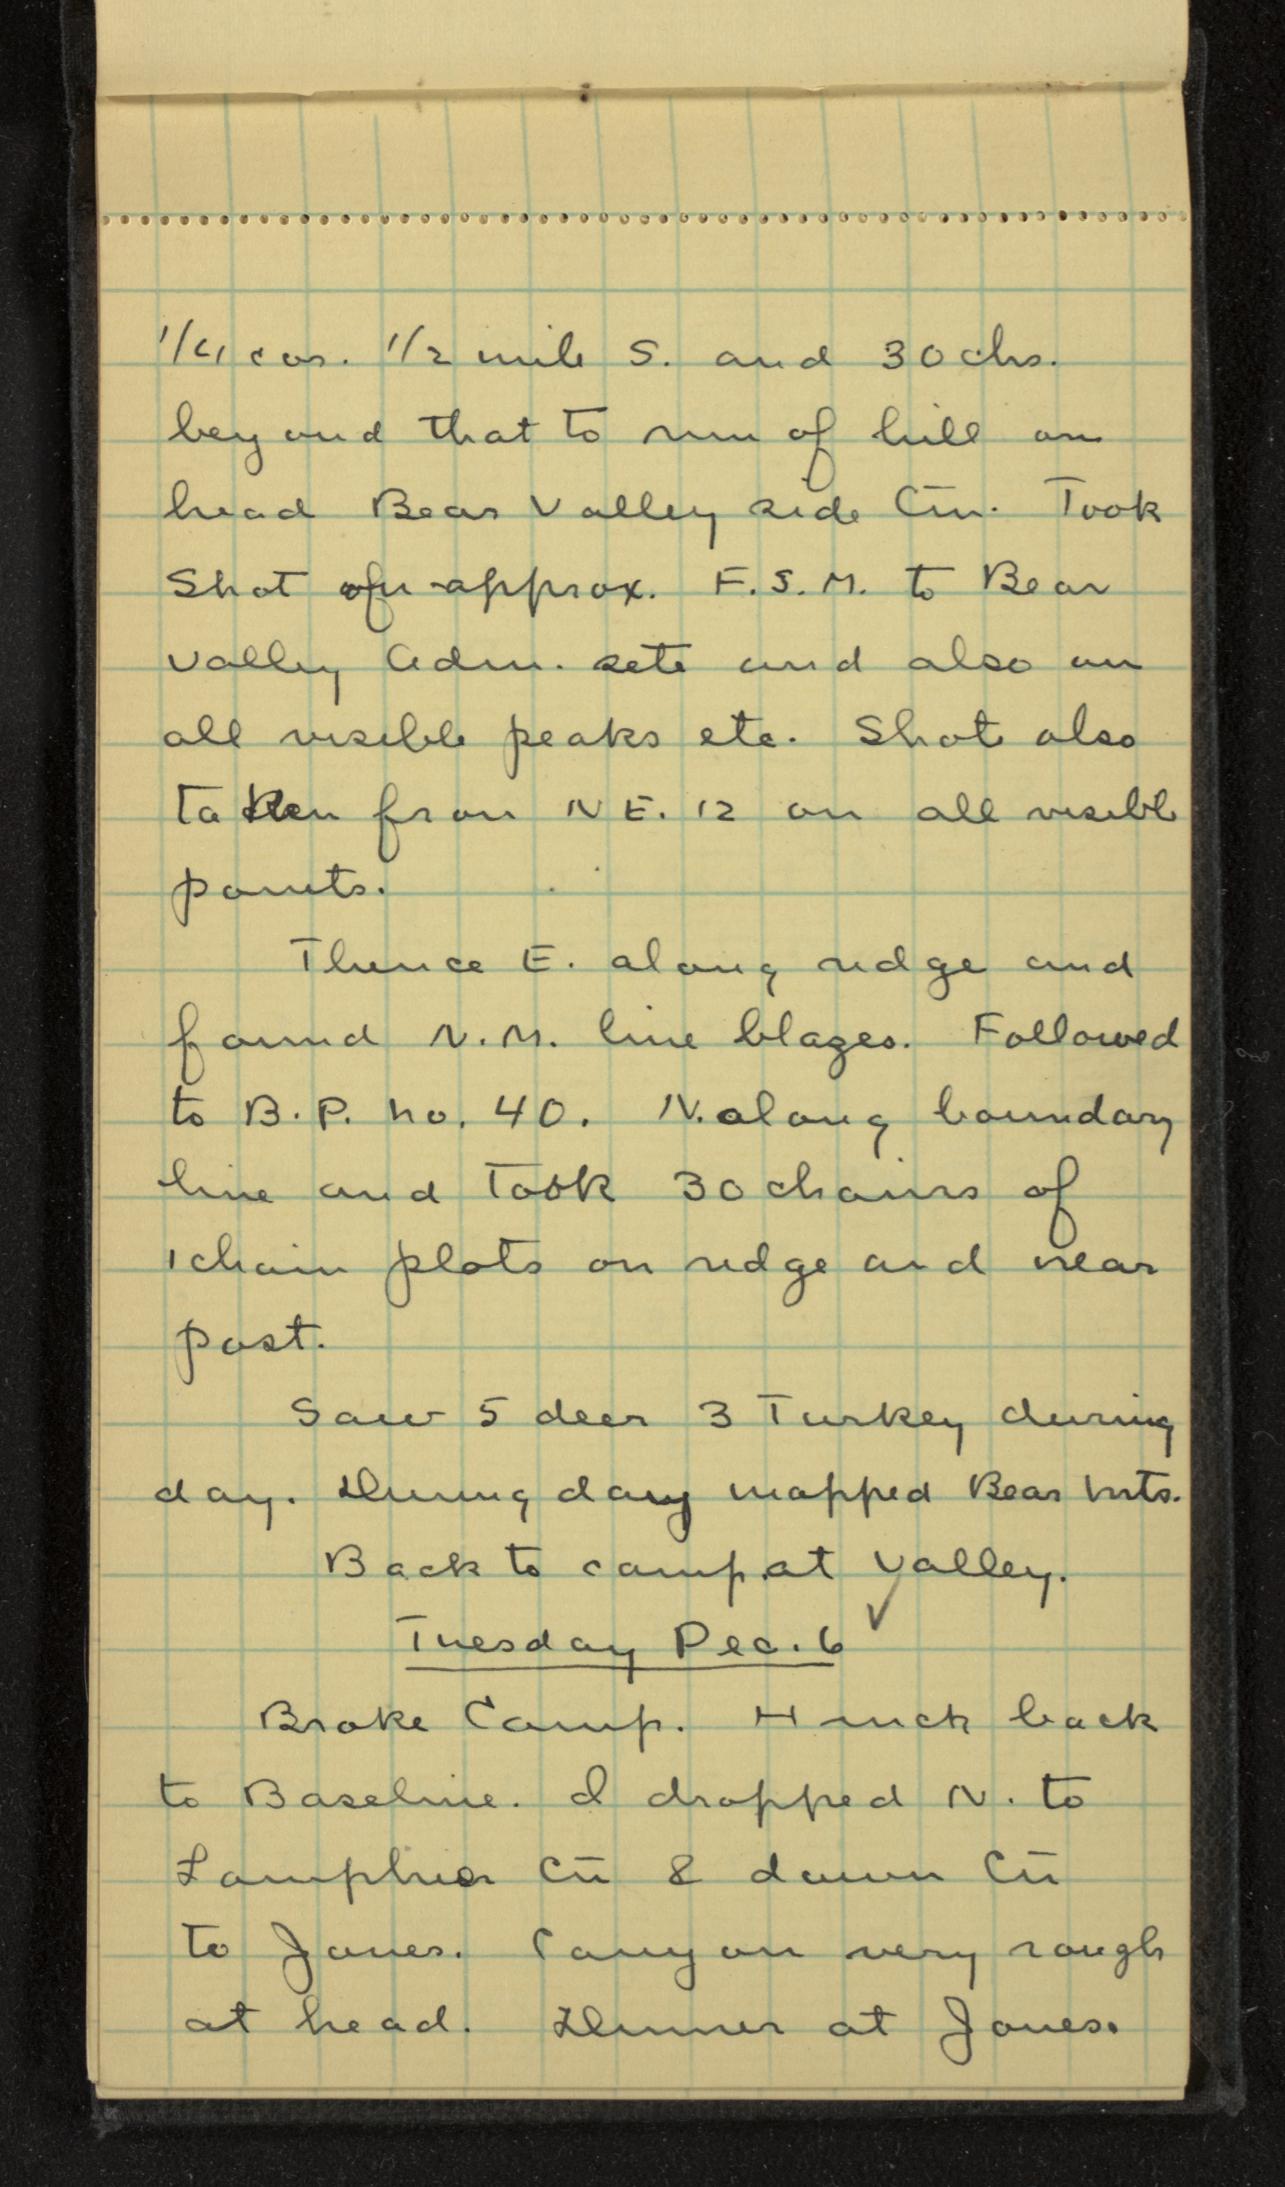 1/4 cor. 1/2 mile S. and 30 chs.
beyond that to run of hill on
head Bear Valley side Cn. Took
Shot on approx. F.S.M. to Bear
Valley Adm. site and also on
all visible peaks etc. Shots also
taken from NE. 12 on all visible
points.
Thence E. along ridge and
found N.M. line blazes. Followed
to B.P. no. 40. N. along boundary
line and Took 30 chains of
1 chain plots on ridge and near
post.
Saw 5 deer 3 Turkey during
day. During day mapped Bear Mts.
Back to camp at Valley.
Tuesday Dec. 6
Broke Camp. Hinck back
to Baseline. I dropped N. to
Lamphier Cn & down Cn
to Jones. Canyon very rough
at head. Dinner at Jones.